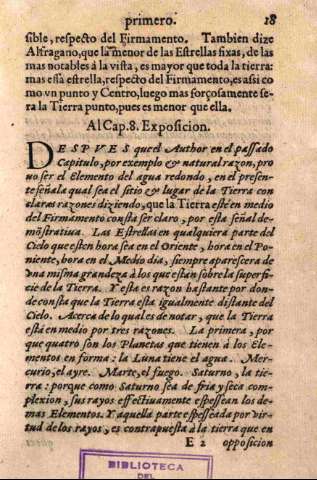 primero. 18
sible, respecto del Firmamento. Tambien dize
Alfragano, que la menor de las Estrellas fixas, de las
mas notables à la vista, es mayor que toda la tierra:
mas essa estrella, respecto del Firmamento, es assi co
mo vn punto y Centro, luego mas forçosamente se-
ra la Tierra punto, pues es menor que ella.
Al Cap. 8. Exposicion.
DESPVES que el Author en el passado
Capitulo, por exemplo & natural razon, pro
uo ser el Elemento del agua redondo, en el presen-
te señala qual sea el sitio & lugar de la Tierra con
claras razones diziendo, que la Tierra esté en medio
del Firmamento consta ser claro, por esta señal de-
mõstratiua. Las Estrellas en qualquiera parte del
Cielo que esten hora sea en el Oriente, hora en el Po-
niente, hora en el Medio dia, siempre aparescera de
vna misma grandeza à los que estàn sobre la superfi-
cie de la Tierra. Y esta es razon bastante por don-
de consta que la Tierra esta igualmente distante del
Cielo. Acerca de lo qual es de notar, que la Tierra
està en medio por tres razones. La primera, por
que quatro son los Planetas que tienen à los Ele-
mentos en forma: la Luna tiene el agua. Mer-
curio, el ayre. Marte, el fuego. Saturno, la tie-
rra: porque como Saturno sea de fria y seca com-
plexion, sus rayos effectiuamente espessan los de-
mas Elementos. Y aquella parte espessada por vir-
tud de los rayos, es contrapuesta à la tierra que en
E 2 opposicion
BIBLIOTECA
DEL